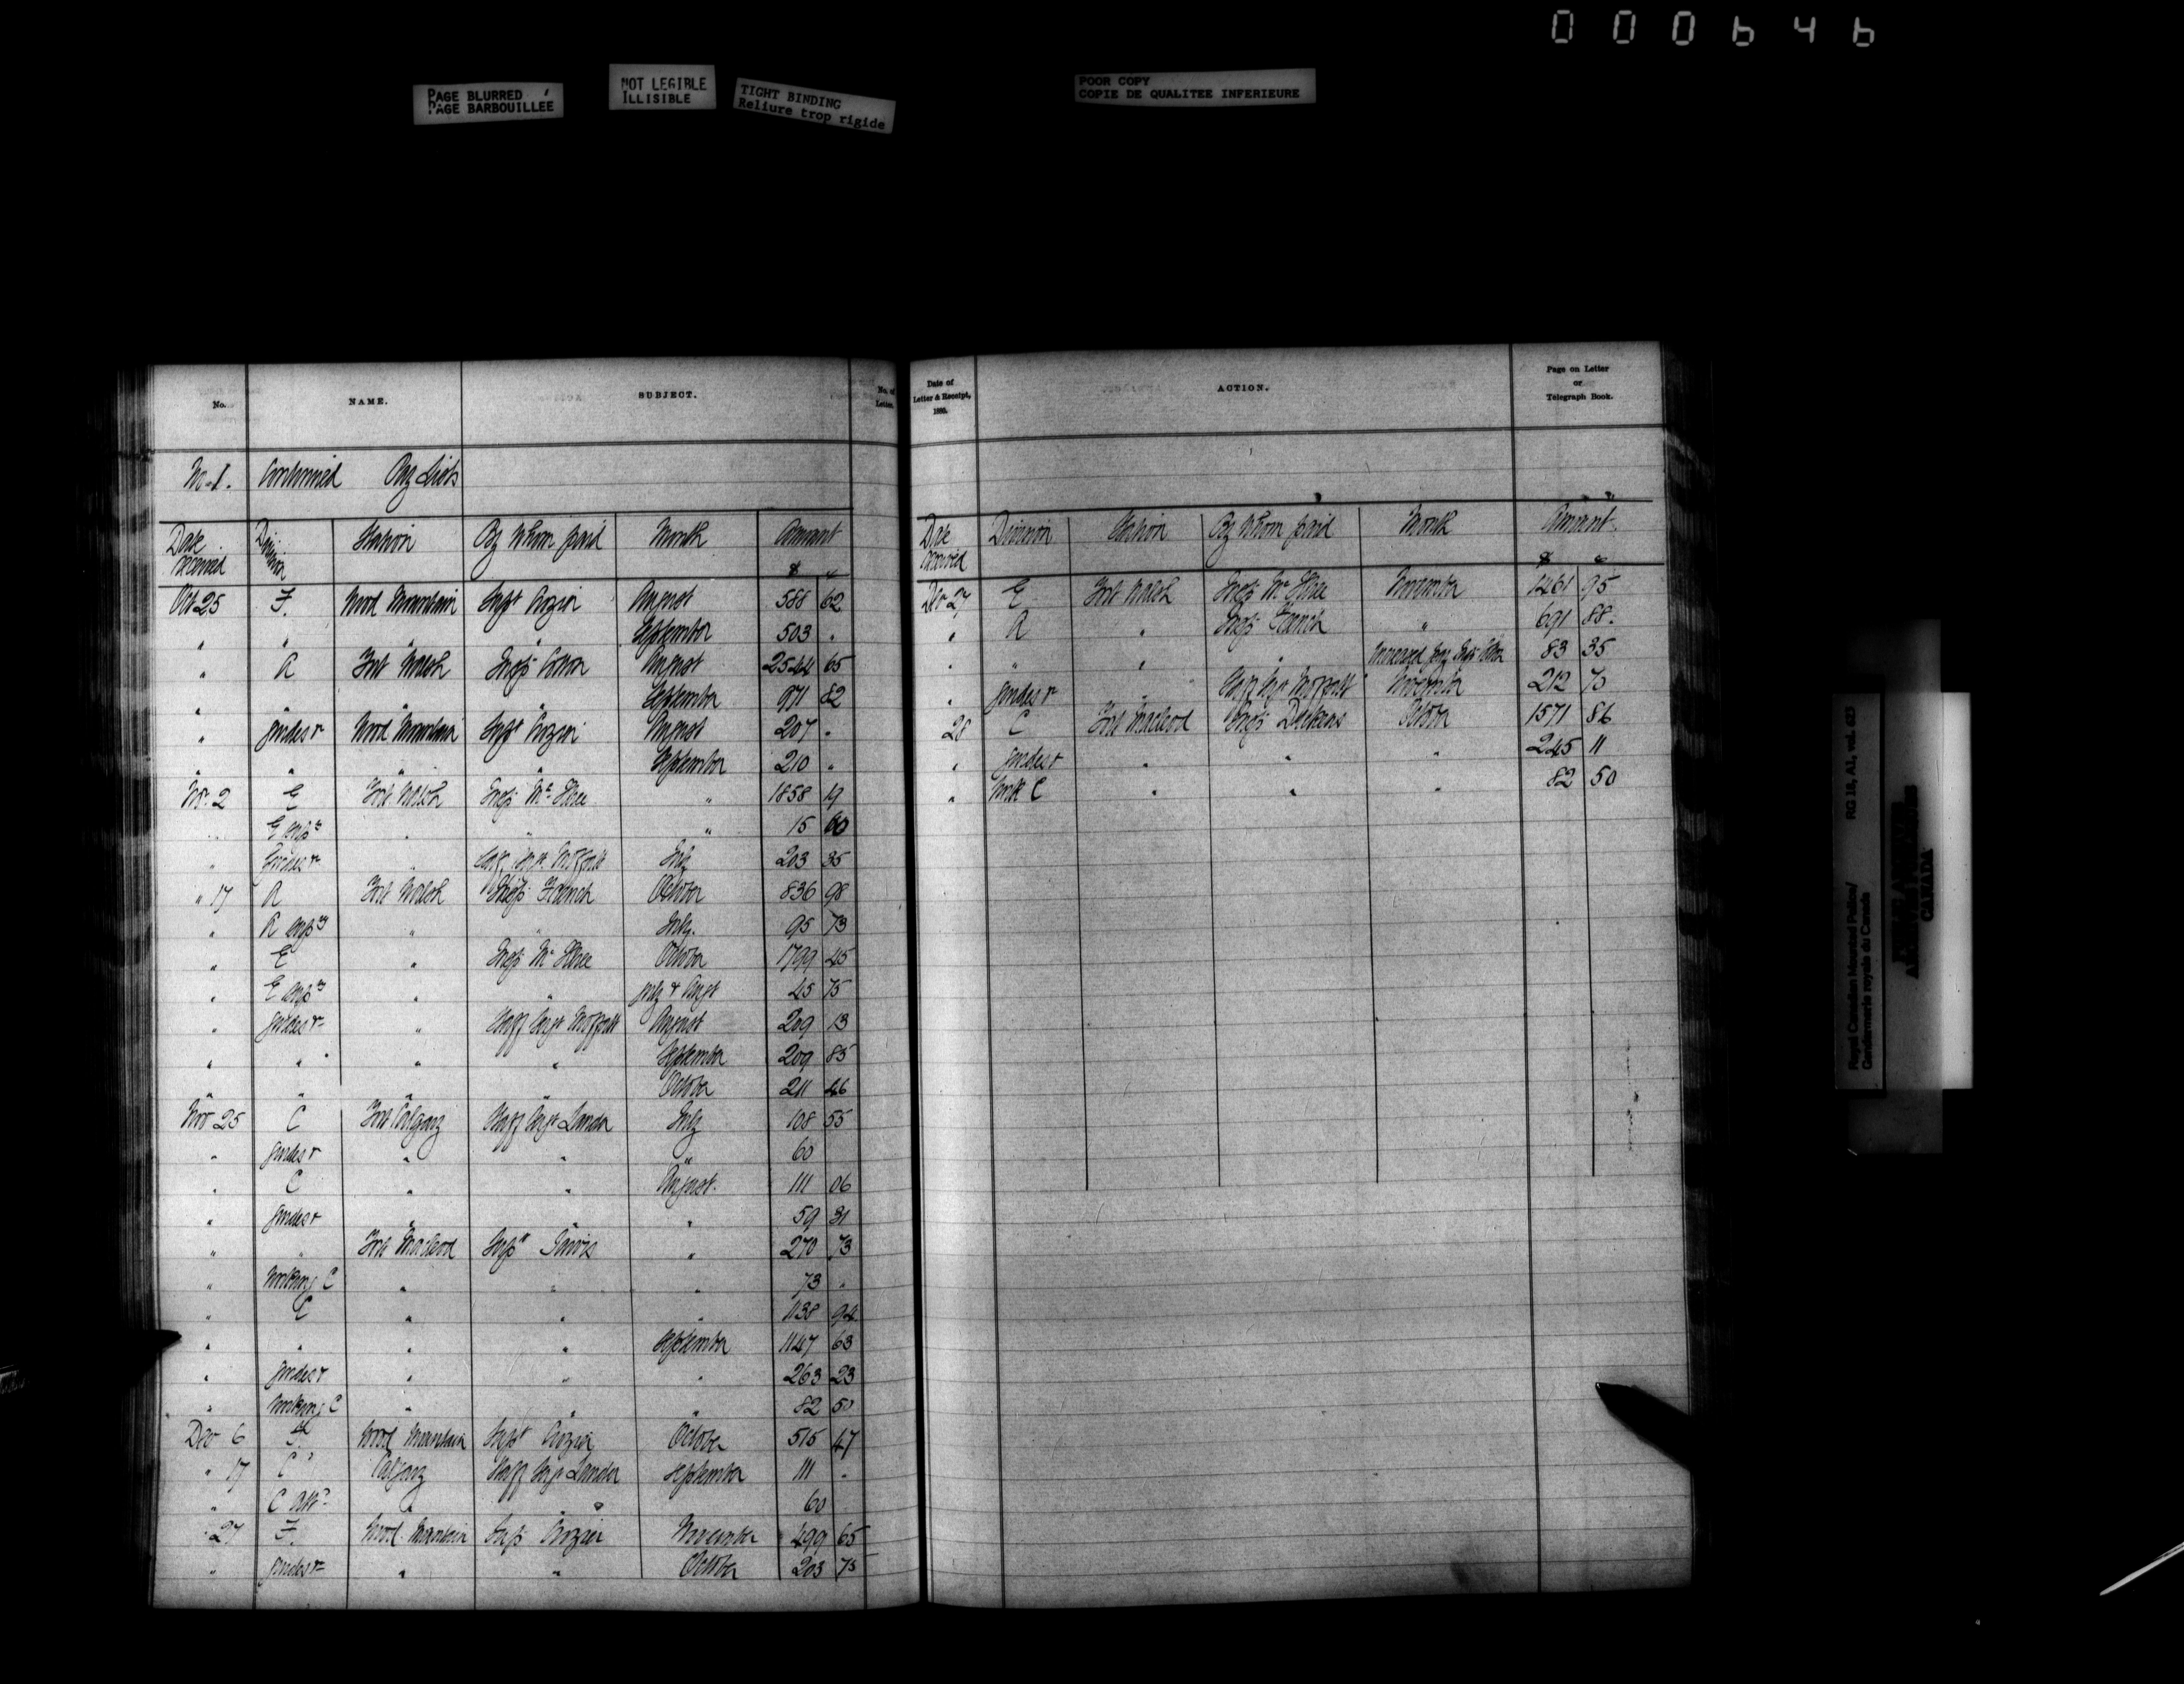 000646
PAGE BLURRED
PAGE BARBOUILLEE
NOT LEGIBLE
ILLISIBLE
TIGHT BINDING
Reliure trop rigide
POOR COPY
COPIE DE QUALITEE INFERIEURE
No. NAME. SUBJECT. No. of Letter.
No. 1. Continued Pay Lists
Date received Division Station By Whom paid Month Amount
$ c
Oct 25 F. Wood Mountain Supt Crozier August 588 62
" " " " September 503 "
" A Fort Walsh Insp. Cotton August 2544 65
" " " " September 971 82
" Guides &c Wood Mountain Supt Crozier August 207 "
" " " " September 210 "
Nov. 2 E Fort Walsh Insp. McIllree " 1858 19
" E Supy " " " 15 60
" Guides &c " Staff Sergt Moffatt July 203 35
" 17 A Fort Walsh Insp. French October 836 98
" A Supy " " July. 95 73
" E " Insp McIllree October 1799 45
" E Supy " " July & Augt 45 75
" Guides &c " Staff Sergt Moffatt August 209 13
" " " " September 209 85
" " " " October 211 46
Nov 25 C Fort Calgary Staff Sergt Lander July 108 55
" Guides &c " " " 60
" C " " August. 111 06
" Guides &c " " " 59 31
" " Fort Macleod Supt Jarvis " 270 73
" Working C " " " 73 "
" C " " " 1138 94
" " " " September 1147 63
" Guides &c " " " 263 23
" Working C " " " 82 50
Dec 6 F. Wood Mountain Supt Crozier October 515 47
" 17 C Calgary Staff Sergt Lander September 111 "
" C " " " 60
" 27 F. Wood Mountain Supt Crozier November 499 65
" Guides &c " " October 203 75
Date of Letter & Receipt, 1880. ACTION. Page on Letter or Telegraph Book.
Date received Division Station By Whom paid Month Amount
$ c
Dec 27 E Fort Walsh Insp McIllree November 1461 95
" A " Insp French " 691 88.
" " " " Increased pay Insp 83 35
" Guides &c " Staff Sergt Moffatt November 212 70
28 C Fort Macleod Insp Dickens October 1571 86
" Guides &c " " " 245 11
" Work C " " " 82 50
Royal Canadian Mounted Police/
Gendarmerie royale du Canada
RG 18, A1, vol. 623
CANADA